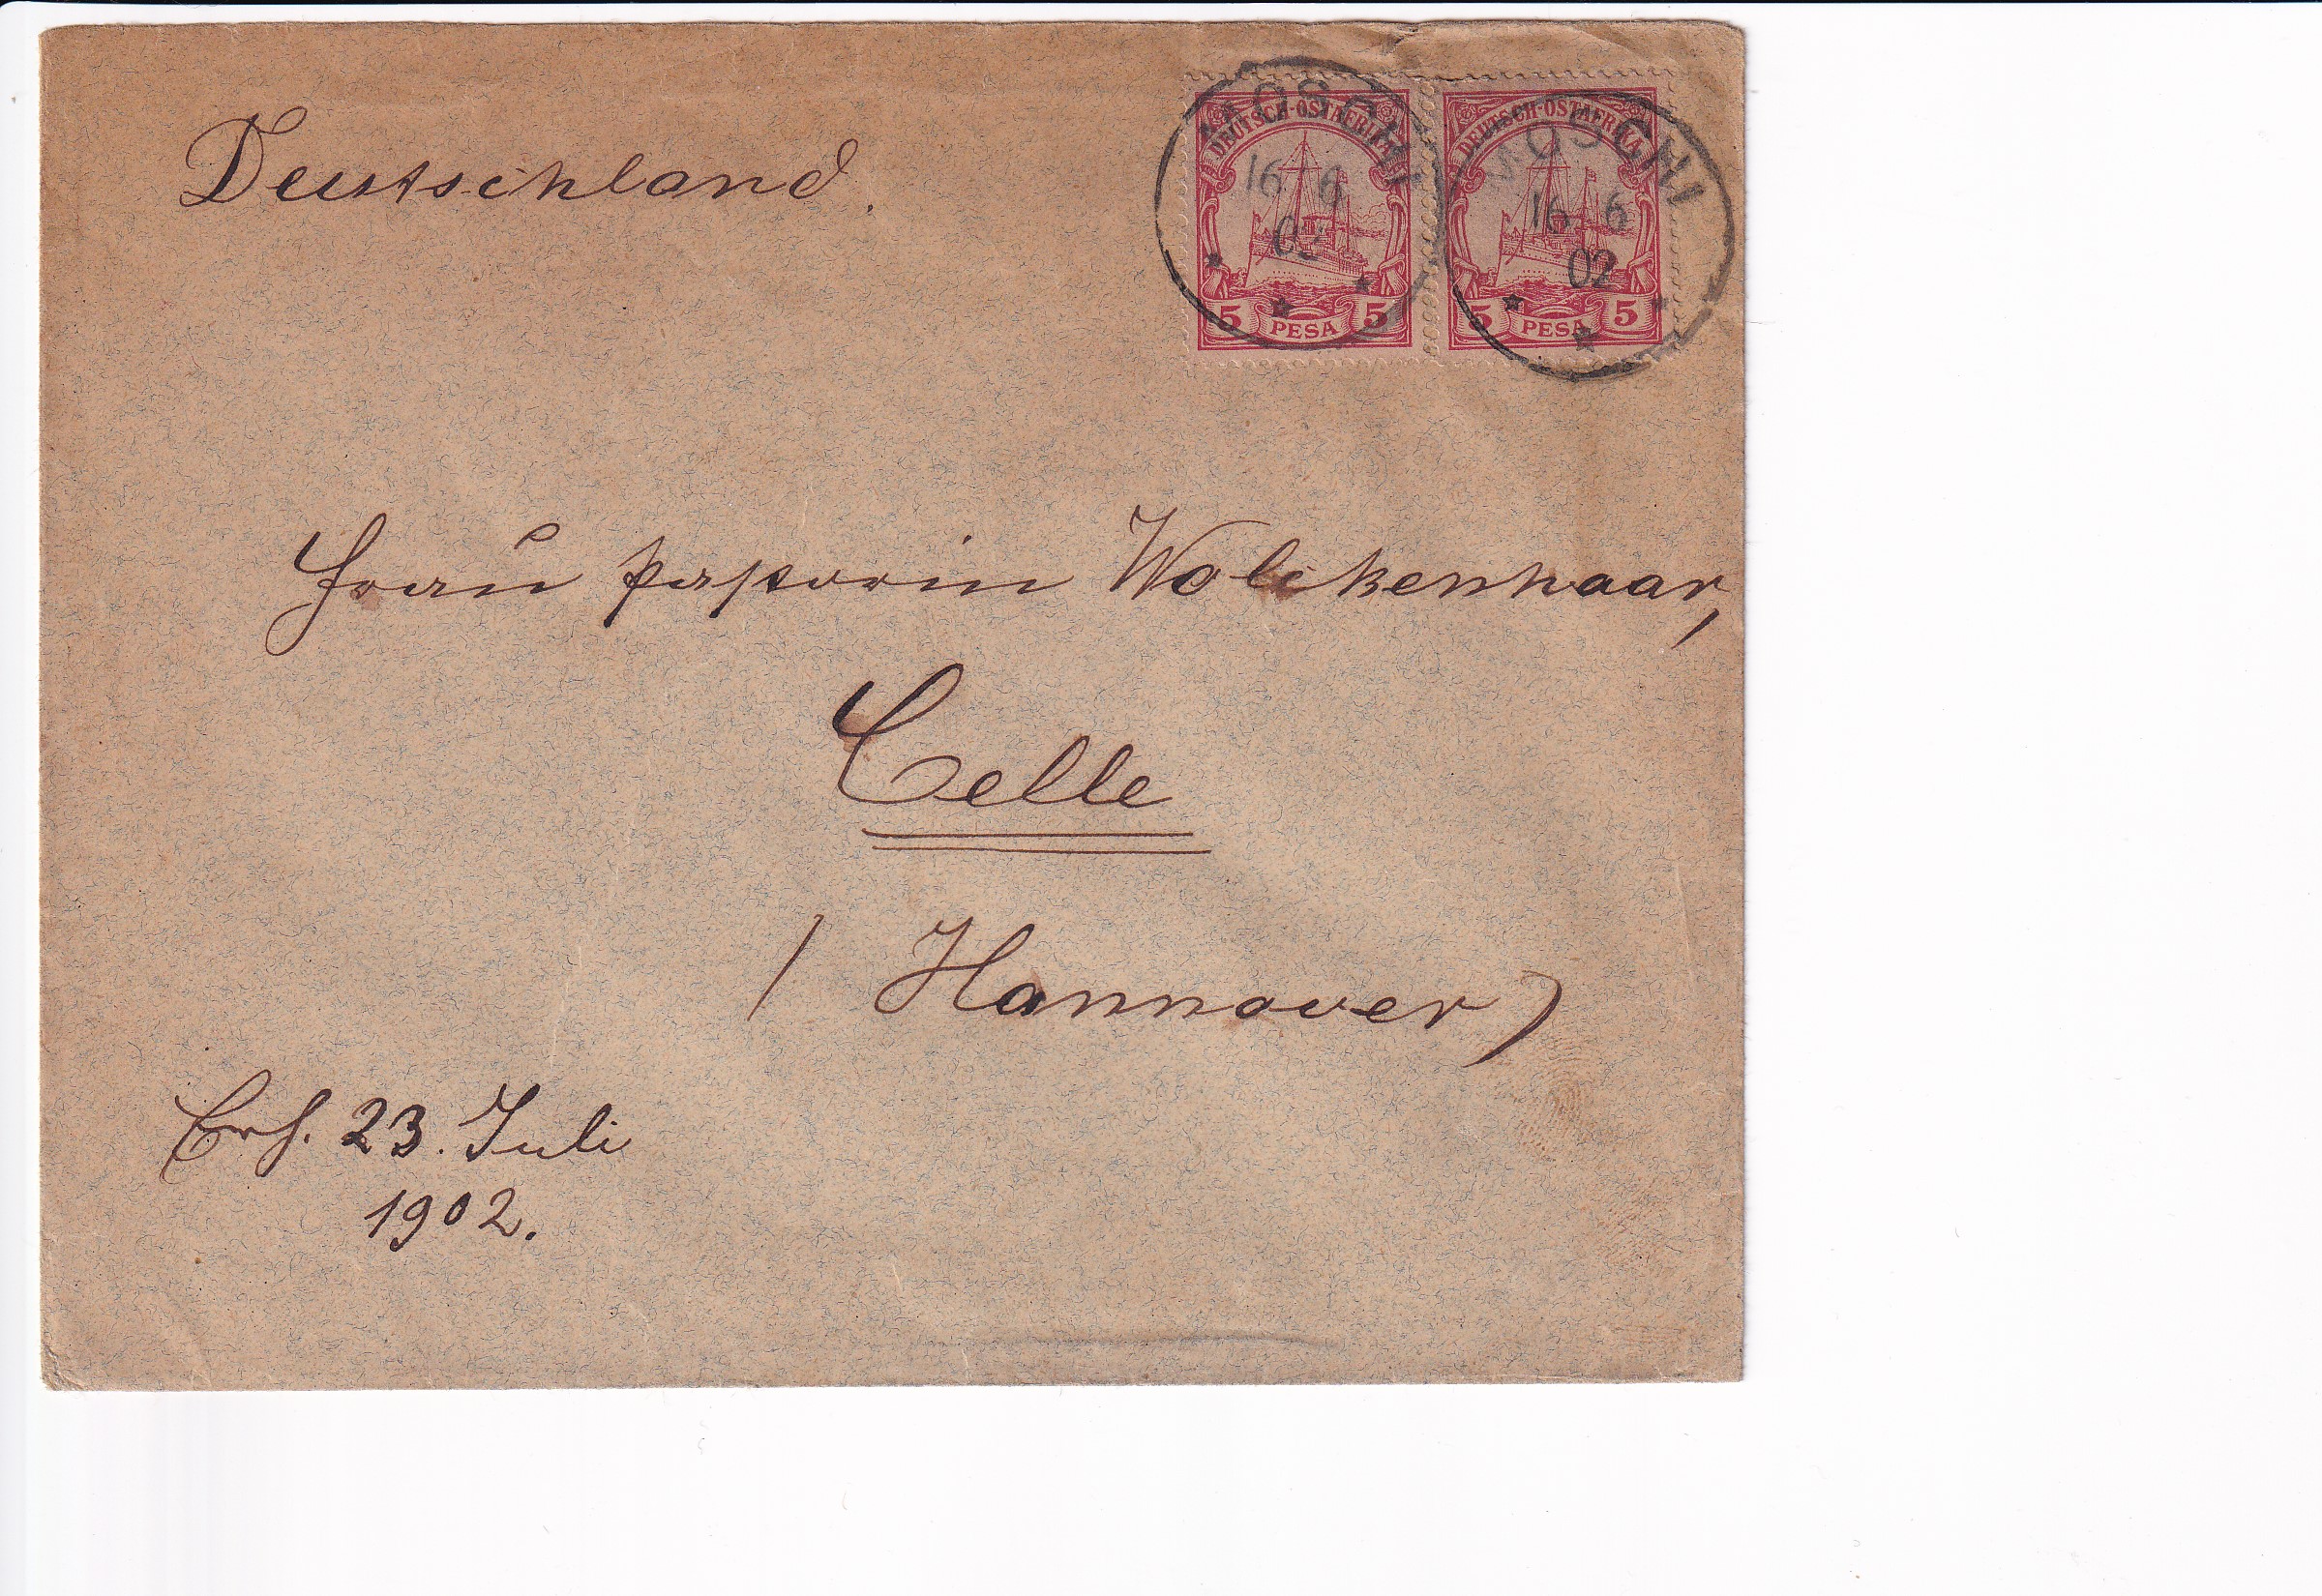 Deutschland.
DEUTSCH-OSTAFRIKA
5 PESA 5
MOSCHI
16 6
02
DEUTSCH-OSTAFRIKA
5 PESA 5
MOSCHI
16 6
02
Frau Pastorin Wolckenhaar,
Celle
(Hannover)
Erh. 23. Juli
1902.